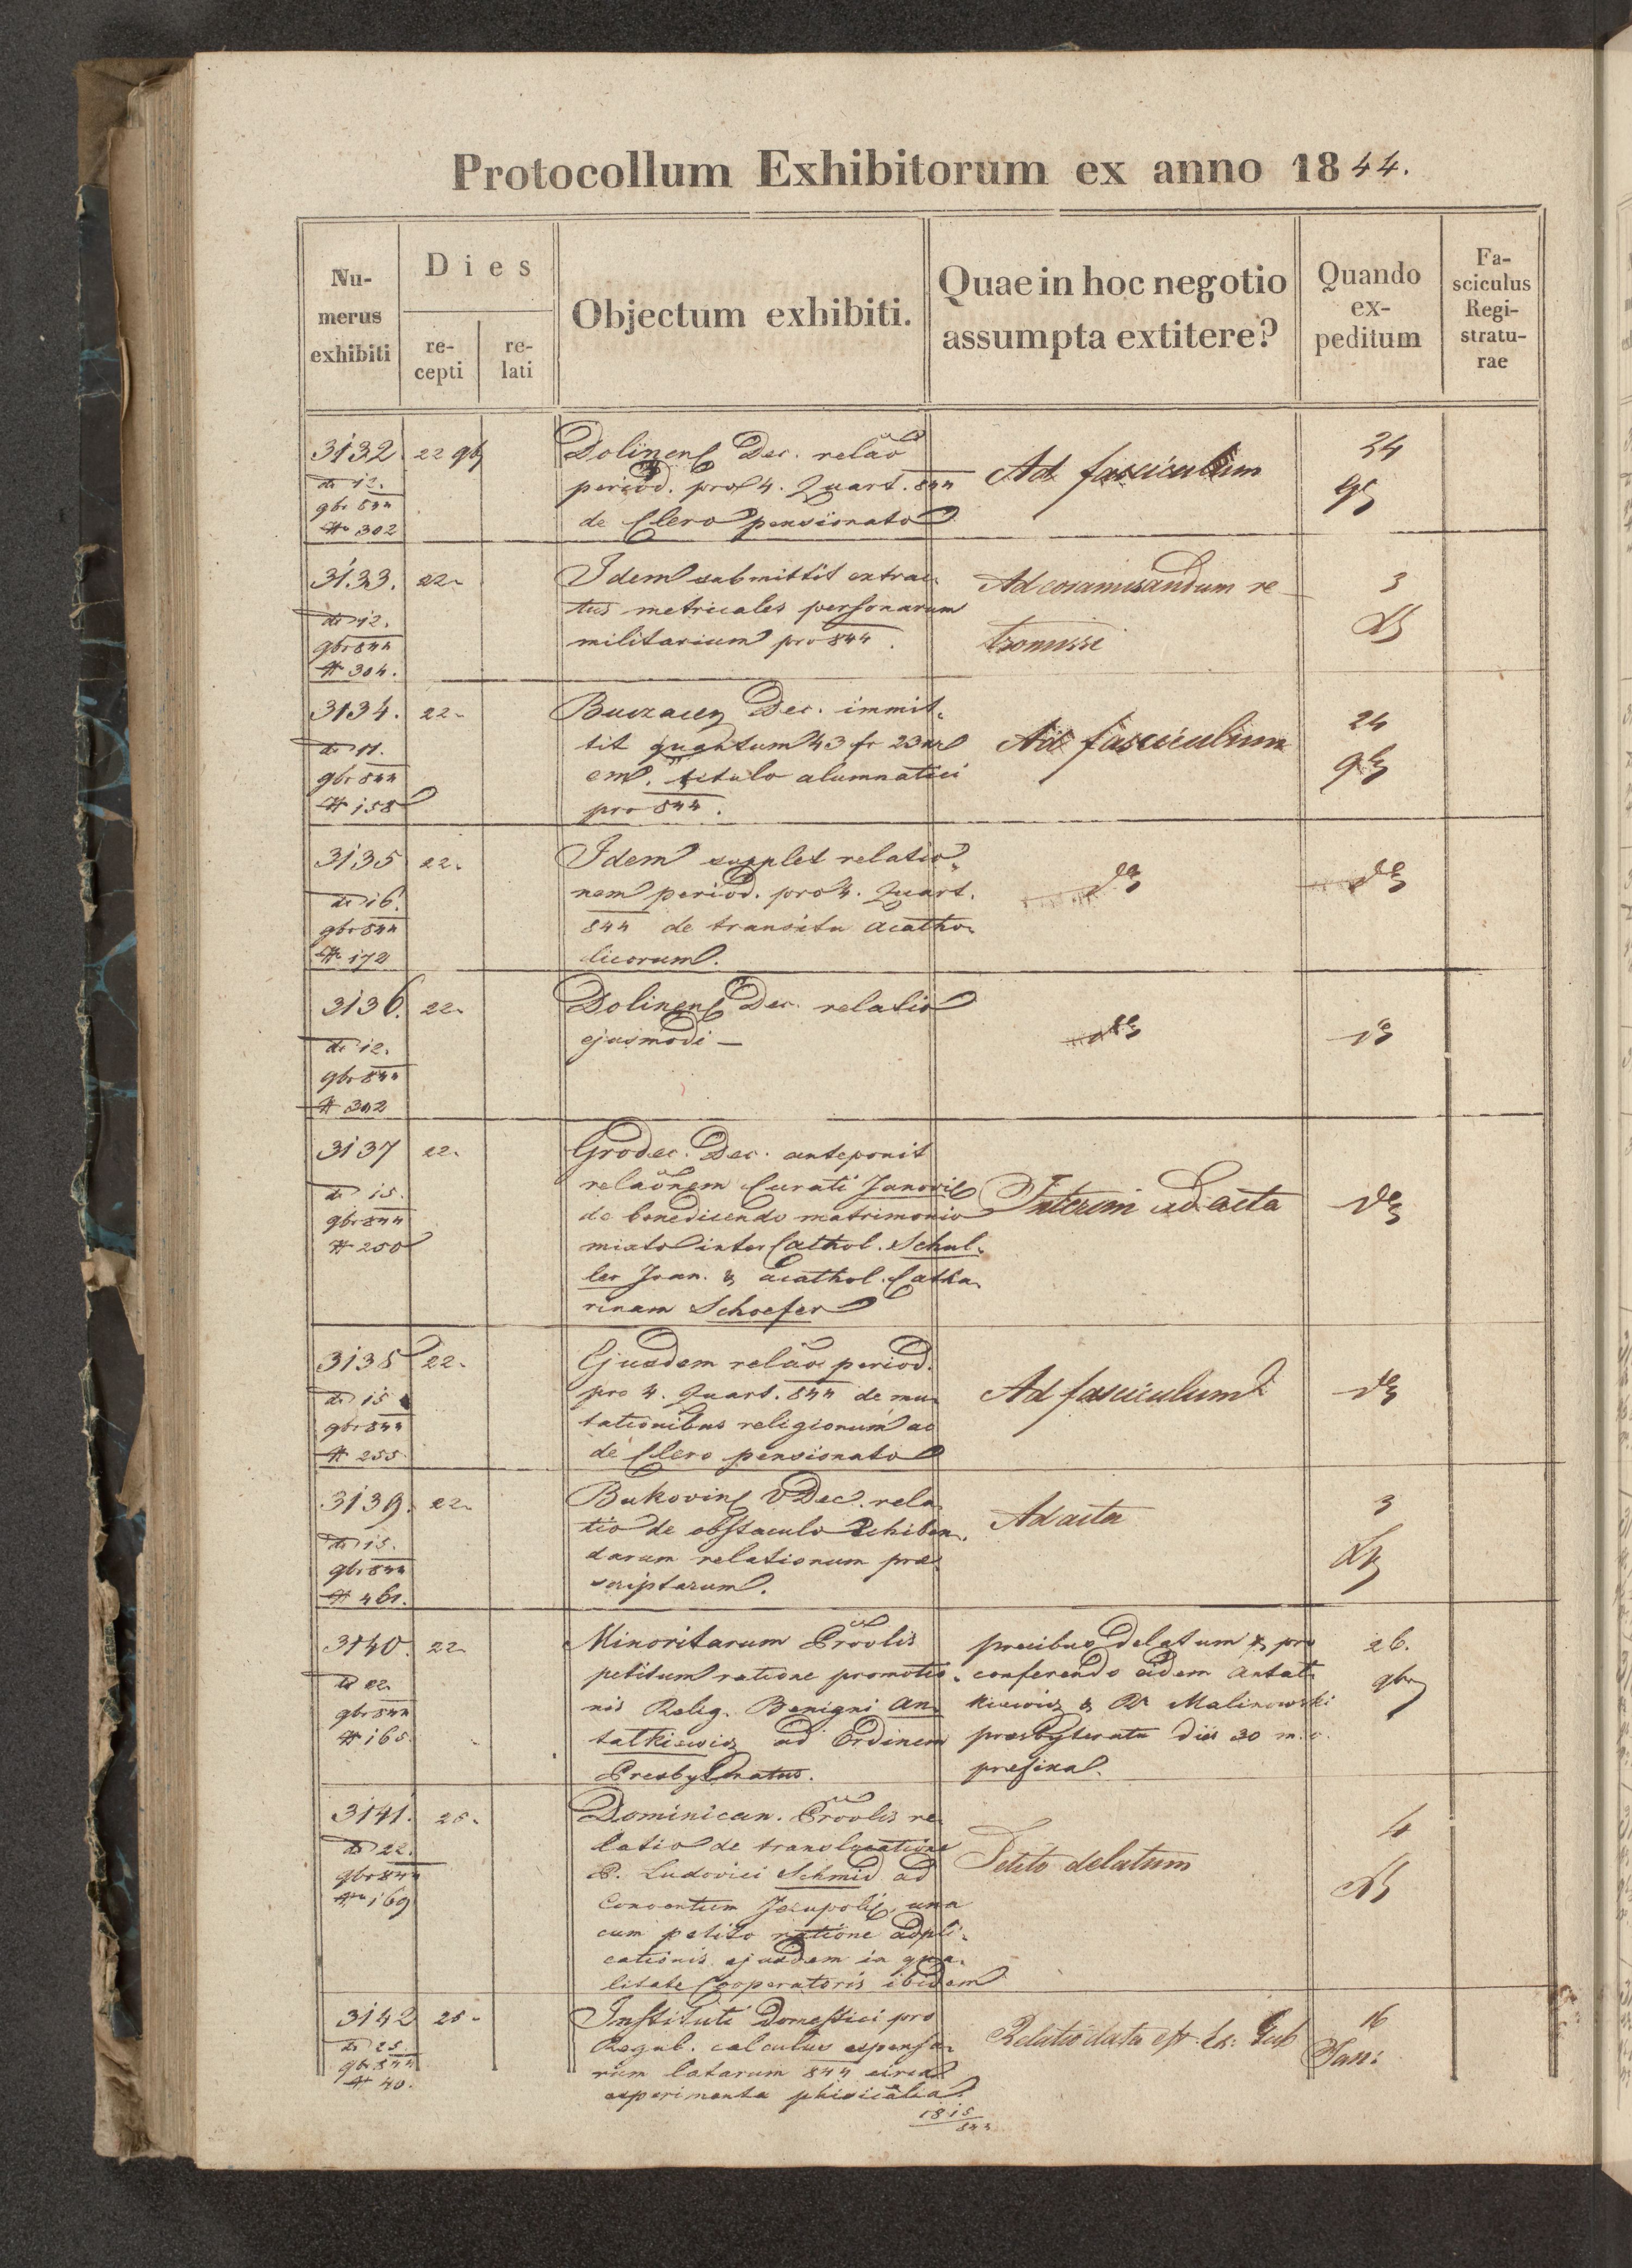 Protocollum Exhibitorum ex anno 1844.
Nu-
merus
exhibiti
Dies
re-
cepti
re-
lati
Objectum exhibiti.
Quae in hoc negotio
assumpta extitere?
Quando
ex-
peditum
Fa-
sciculus
Regi-
stratu-
rae
3132. 22 9b
dt 12.
9br 844
# 302
Dolinens Dec. relao
period. pro 4. Quart. 844
de Clero pensionato
Ad fasciculum
24
9b
3133. 22.
dt 12.
9br 844
# 304.
Idem submittit extrac
tus metricales personarum
militarium pro 844.
Ad coramisandum re
tromissi
3
Xb
3134. 22.
dt 11.
9br 844
# 158
Buczacen Dec. immit-
tit quantum 43 fr 23 xr
cm. titulo alumnatici
pro 844.
Ad fasciculum
24
9b
3135 22.
dt 16.
9br 844
# 172
Idem supplet relatio-
nem period. pro 4. Quart.
844 de transitu acatho-
licorum.
3136. 22.
dt 12.
9br 844
# 302
Dolinens Dec. relatio
ejusmodi —
3137 22.
dt 15.
9br 844
# 250
Grodec. Dec. anteponit
relaonem Curati Janovie
de benedicendo matrimonio
mixto inter Cathol. Schul-
ler Joan. & acathol. Catha-
rinam Schoefer
Interim ad acta
3138 22.
dt 15
9br 844
# 255.
Ejusdem relao period.
pro 4. Quart. 844 de mu-
tationibus religionum ac
de Clero pensionato
Ad fasciculum
3139. 22.
dt 15.
9br 844
# 461.
Bukovins VDec. rela
tio de obstaculo exhiben-
darum relationum prae
scriptarum.
Ad acta
3
Xb
3140. 22
dt 22.
9br 844
# 165.
Minoritarum Proolis
petitum ratione promotio-
nis Relig. Benigni An-
tatkiewicz ad Ordinem
Presbyteratus.
precibus delatum & pro
conferendo eidem Antat-
kiewicz & Malinowski
praesbyteratu dies 30 m. c.
prefixal.
26.
9br
3141. 25.
dt 22.
9br 844
# 169
Dominican. Proolis re-
latio de translocatione
P. Ludovici Schmid ad
Conventum Jezupolis, una
cum petito ratione appli-
cationis ejusdem in qua-
litate Cooperatoris ibidem
Petito delatum
4
Xb
3142 25.
dt 25.
9br 844
# 40.
Instituti Domestici pro
Regul. calculus expensa-
rum latarum 844 circa
experimenta phisicalia.
1815
844
Relatio data est Ex: Gub
16
Jan: